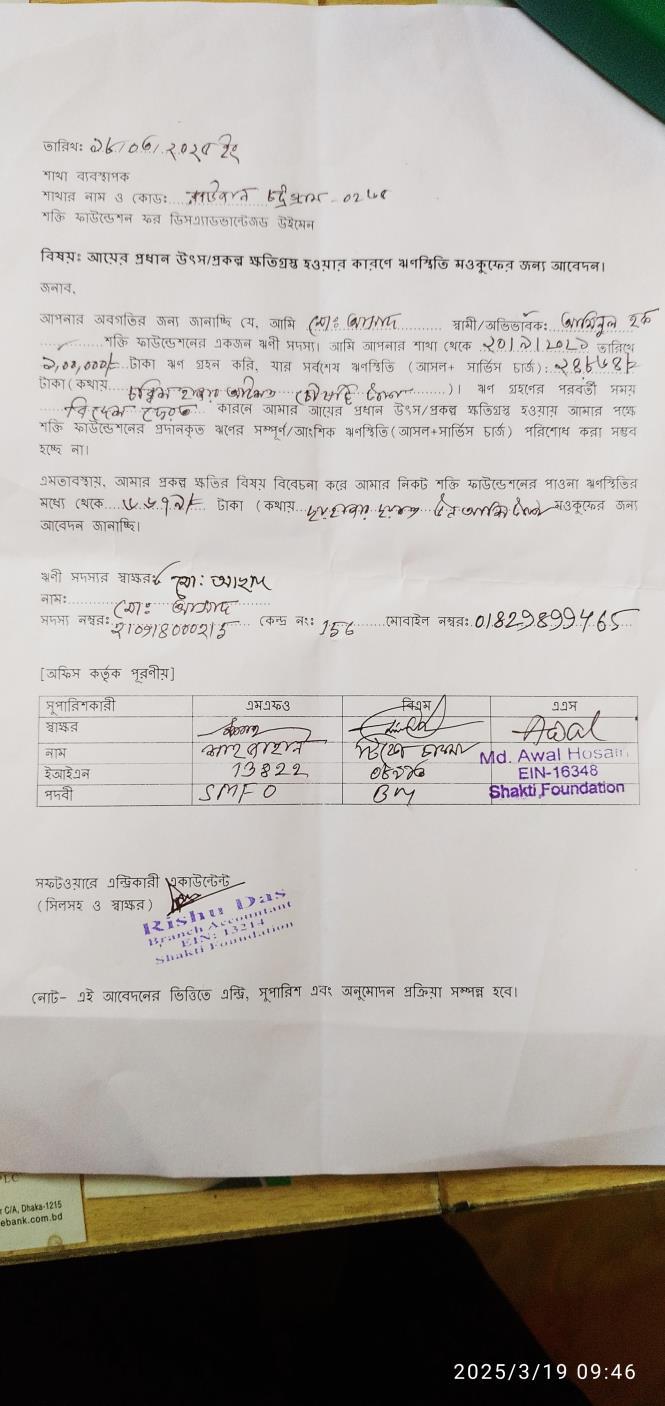 তারিখঃ ১৮/০৩/২০২৫ ইং
শাখা ব্যবস্থাপক
শাখার নাম ও কোডঃ
শক্তি ফাউন্ডেশন ফর ডিসএ্যাডভান্টেজড উইমেন
বিষয়ঃ আয়ের প্রধান উৎস/প্রকল্প ক্ষতিগ্রস্থ হওয়ার কারণে ঋণস্থিতি মওকুফের জন্য আবেদন।
জনাব,
আপনার অবগতির জন্য জানাচ্ছি যে, আমি মোঃ আজাদ স্বামী/অভিভাবকঃ আমিনুল হক
শক্তি ফাউন্ডেশনের একজন ঋণী সদস্য। আমি আপনার শাখা থেকে ২০/১/২০২১ তারিখে
১,০০,০০০/- টাকা ঋণ গ্রহন করি, যার সর্বশেষ ঋণস্থিতি (আসল+ সার্ভিস চার্জ):
টাকা (কথায় )। ঋণ গ্রহণের পরবর্তী সময়
বিদেশ ফেরত কারনে আমার আয়ের প্রধান উৎস/প্রকল্প ক্ষতিগ্রস্থ হওয়ায় আমার পক্ষে
শক্তি ফাউন্ডেশনের প্রদানকৃত ঋণের সম্পূর্ণ/আংশিক ঋণস্থিতি(আসল+সার্ভিস চার্জ) পরিশোধ করা সম্ভব
হচ্ছে না।
এমতাবস্থায়, আমার প্রকল্প ক্ষতির বিষয় বিবেচনা করে আমার নিকট শক্তি ফাউন্ডেশনের পাওনা ঋণস্থিতির
মধ্যে থেকে টাকা (কথায় মওকুফের জন্য
আবেদন জানাচ্ছি।
ঋণী সদস্যের স্বাক্ষরঃ মোঃ আজাদ
নামঃ মোঃ আজাদ
সদস্য নম্বরঃ কেন্দ্র নং: 156 মোবাইল নম্বরঃ 01829899465
[অফিস কর্তৃক পূরণীয়]
সুপারিশকারী এমএফও বিএম এএস
স্বাক্ষর Awal
নাম শাহ জাহান Md. Awal Hosain
ইআইএন 13822 EIN-16348
পদবী SMFO BM Shakti Foundation
সফটওয়ারে এন্ট্রিকারী একাউন্টেন্ট
(সিলসহ ও স্বাক্ষর)
Rishu Das
Branch Accountant
EIN: 13214
Shakti Foundation
নোট- এই আবেদনের ভিত্তিতে এন্ট্রি, সুপারিশ এবং অনুমোদন প্রক্রিয়া সম্পন্ন হবে।
C/A, Dhaka-1215
ebank.com.bd
2025/3/19 09:46